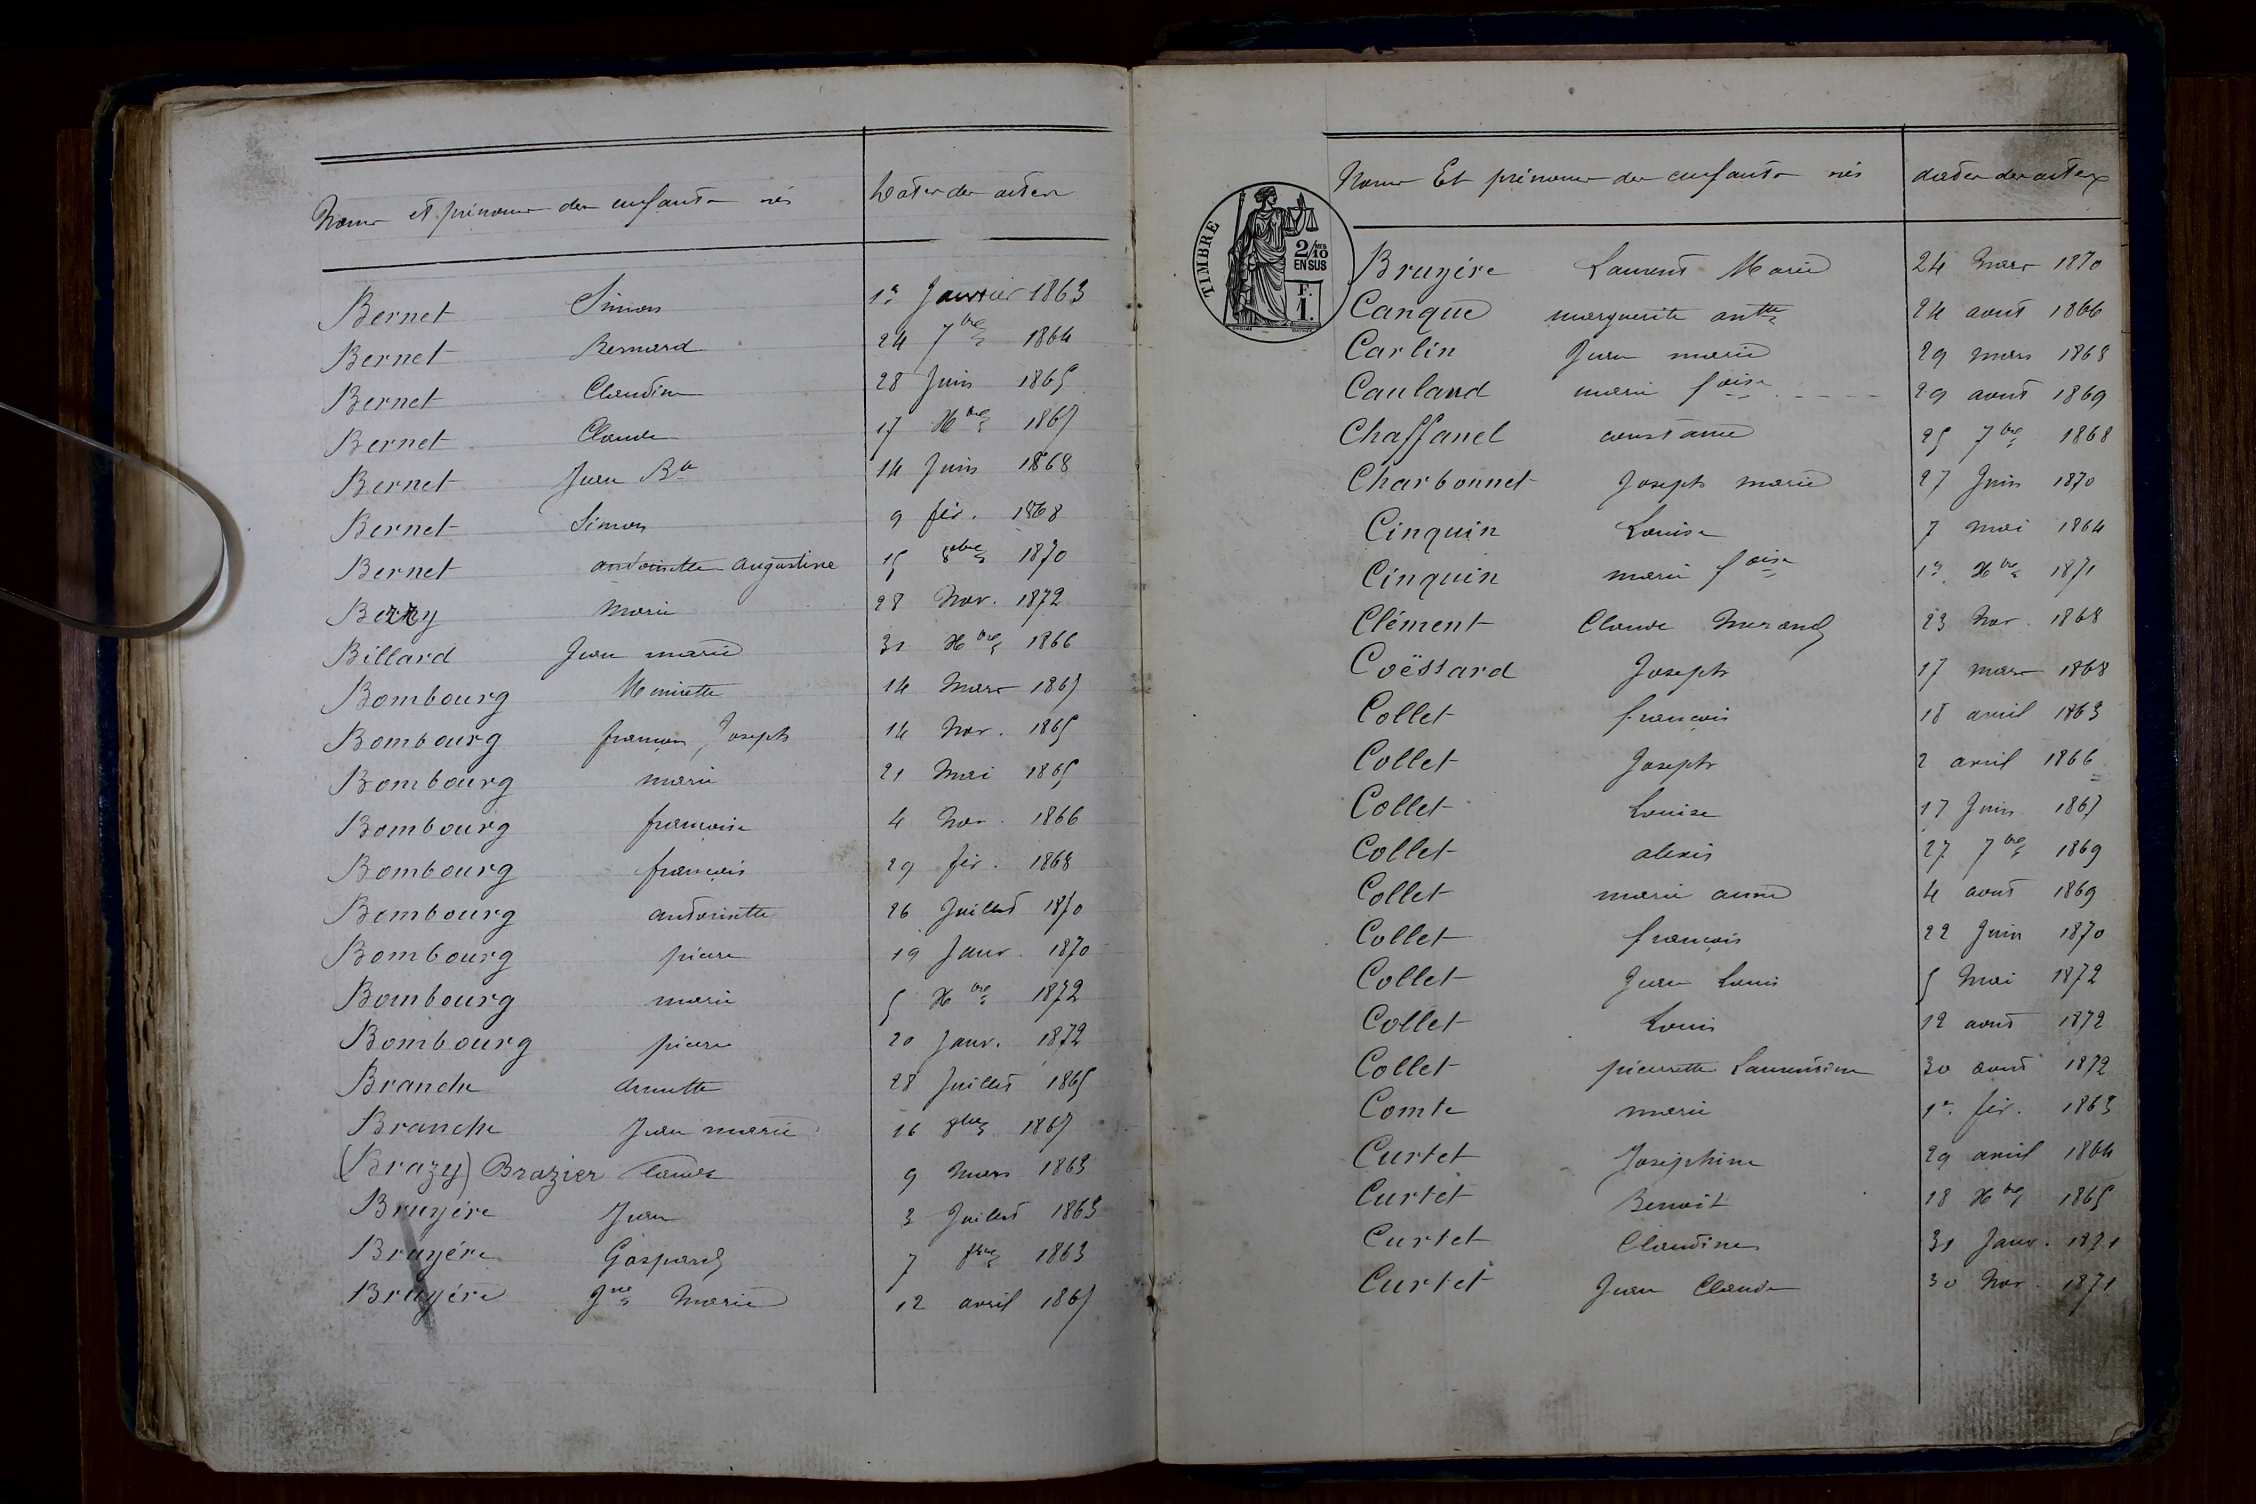 Noms et prénoms des enfants nés Dates des actes
Bernet Simon 1er Janvier 1863
Bernet Bernard 24 7bre 1864
Bernet Claudine 28 Juin 1865
Bernet Claude 17 Xbre 1867
Bernet Jean Bte 14 Juin 1868
Bernet Simon 9 fév. 1868
Bernet antoinette augustine 15 8bre 1870
Berry Marie 28 Nov. 1872
Billard Jean marie 31 Xbre 1866
Bombourg 14 Mars 1867
Bombourg françois Joseph 14 Nov. 1865
Bombourg marie 21 Mai 1865
Bombourg françoise 4 Nov. 1866
Bombourg françois 29 fév. 1868
Bombourg antoinette 26 Juillet 1870
Bombourg pierre 19 Janv. 1870
Bombourg marie 5 Xbre 1872
Bombourg pierre 20 Janv. 1872
Branche annette 28 Juillet 1865
Branche Jean marie 16 8bre 1867
(Brazy) Brazier Claude 9 Mars 1863
Bruyère Jean 3 Juillet 1863
Bruyère Gaspard 7 1863
Bruyère Jne Marie 12 avril 1867
Noms Et prénoms des enfants nés dates des actes
TIMBRE
2/10 MES
EN SUS
F.
1.
Bruyère Laurent Marie 24 Mars 1870
Canque marguerite antte 24 août 1866
Carlin Jean marie 29 mars 1868
Cauland marie foise - - - - 29 août 1869
Chaffanel constance 25 7bre 1868
Charbonnet Joseph marie 27 Juin 1870
Cinquin Louise 7 mai 1864
Cinquin marie foise 1er Xbre 1871
Clément Claude 23 Nov. 1868
Coëssard Joseph 17 mars 1868
Collet françois 18 avril 1863
Collet Joseph 2 avril 1866
Collet Louise 17 Juin 1867
Collet alexis 27 7bre 1869
Collet marie anne 4 août 1869
Collet françois 22 Juin 1870
Collet Jean Louis 5 Mai 1872
Collet Louis 12 août 1872
Collet pierrette Laurentine 30 août 1872
Comte marie 1er fév. 1863
Curtet Joséphine 29 avril 1864
Curtet Benoit 18 Xbre 1865
Curtet Claudine 31 Janv. 1871
Curtet Jean Claude 30 Nov. 1871